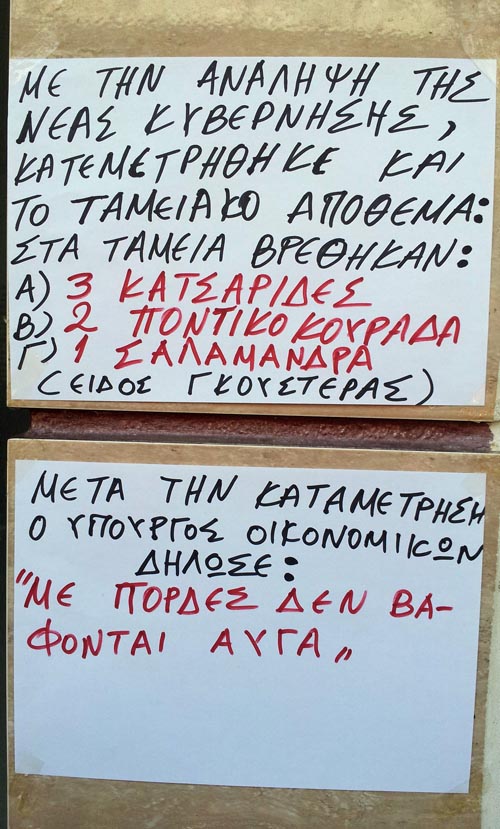 ΜΕ ΤΗΝ ΑΝΑΛΗΨΗ ΤΗΣ
ΝΕΑΣ ΚΥΒΕΡΝΗΣΗΣ,
ΚΑΤΕΜΕΤΡΗΘΗΚΕ ΚΑΙ
ΤΟ ΤΑΜΕΙΑΚΟ ΑΠΟΘΕΜΑ:
ΣΤΑ ΤΑΜΕΙΑ ΒΡΕΘΗΚΑΝ:
Α) 3 ΚΑΤΣΑΡΙΔΕΣ
Β) 2 ΠΟΝΤΙΚΟΚΟΥΡΑΔΑ
Γ) 1 ΣΑΛΑΜΑΝΔΡΑ
(ΕΙΔΟΣ ΓΚΟΥΣΤΕΡΑΣ)
ΜΕΤΑ ΤΗΝ ΚΑΤΑΜΕΤΡΗΣΗ
Ο ΥΠΟΥΡΓΟΣ ΟΙΚΟΝΟΜΙΚΩΝ
ΔΗΛΩΣΕ:
"ΜΕ ΠΟΡΔΕΣ ΔΕΝ ΒΑ-
ΦΟΝΤΑΙ ΑΥΓΑ„